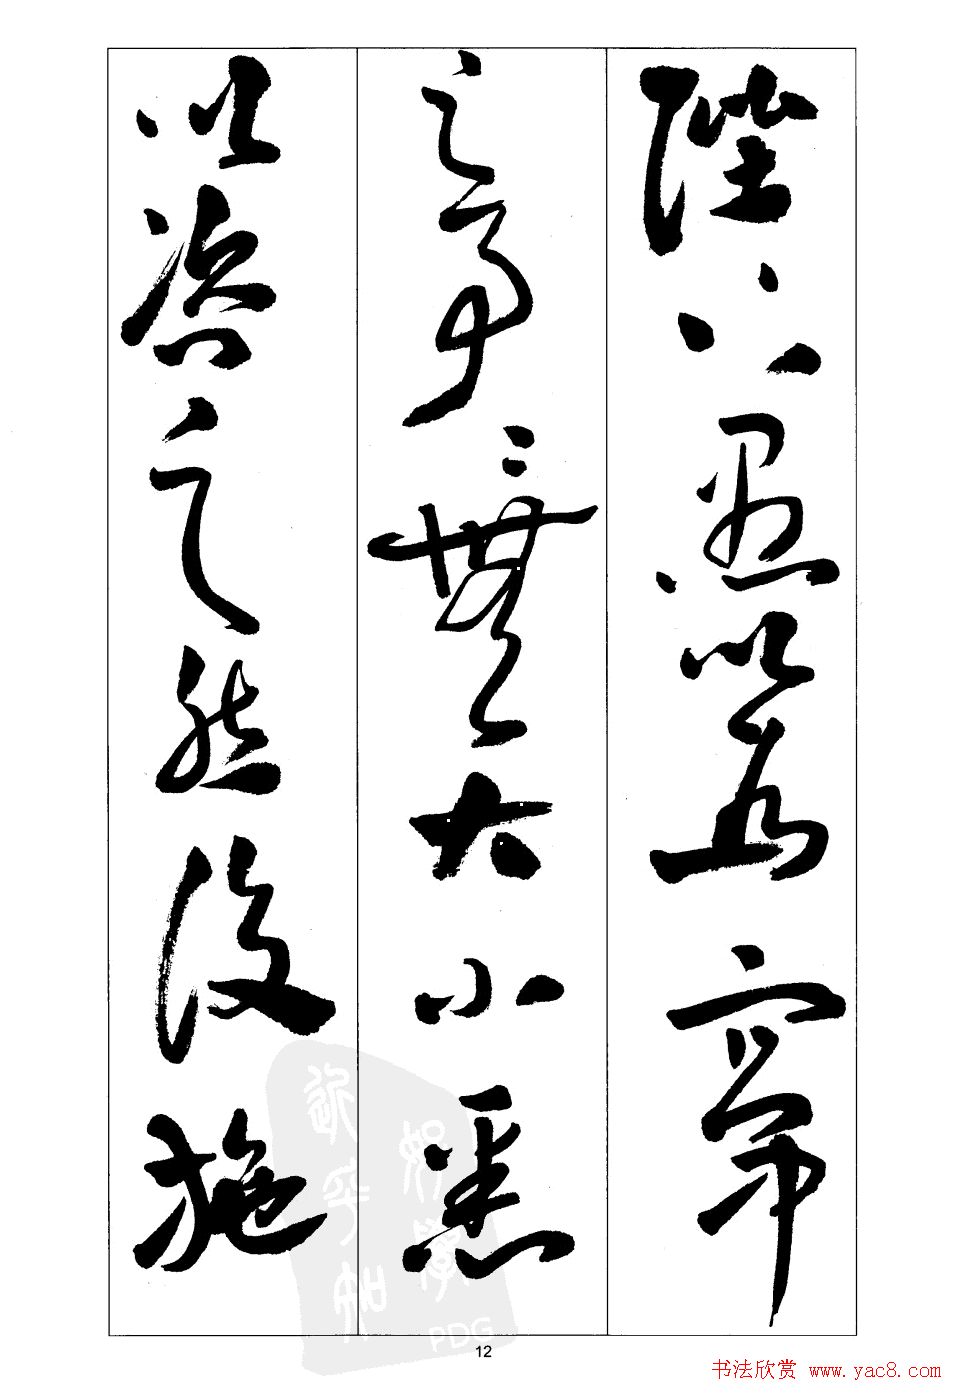 陛下愚以為宮中
之事〻無大小悉
以咨之然後施
PDG
12
书法欣赏 www.yac8.com